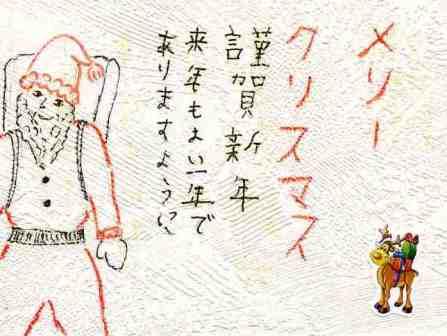 メリー
クリスマス
謹賀新年
来年もよい一年で
ありますように